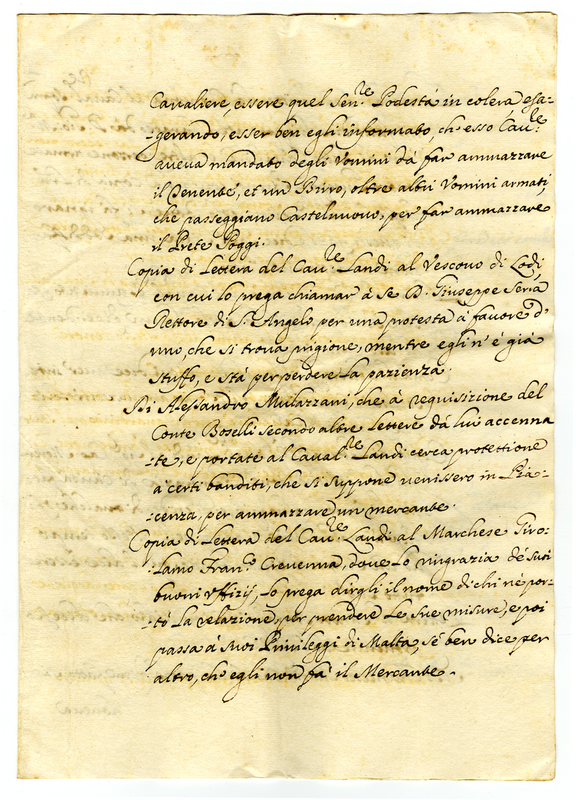 Cavaliere, essere quel Sen.re Podestà in colera esa-
-gerando, esser ben egli informato, che esso Cau.re
aueua mandato degli Vomini dà far ammazzare
il Tenente, et un Birro, oltre altri Vomini armati,
che passeggiano Castelnuouo, per far ammazzare
il Prete Poggi.
Copia di Lettera del Cau.re Landi al Vescouo di Lodi,
con cui lo prega chiamar à se D. Giuseppe Seria
Rettore di S. Angelo per una protesta à fauore d'
uno, che si troua prigione, mentre egli n'è già
stuffo, e stà per perdere la pazienza.
Di Alessandro Mulazzani, che à requisizione del
Conte Boselli secondo altre Lettere dà lui accenna
-te, e portate al Caual.re Landi cerca protettione
à certi banditi, che si suppone venissero in Pia-
-cenza, per ammazzare un mercante.
Copia di Lettera del Cau.re Landi al Marchese Giro-
-lamo Fran.co Creuenna, doue Lo ringrazia dè suoi
buoni Vffizij, Lo prega dirgli il nome di chi nè por-
-tò La relazione, per prendere Le sue misure, e poi
passa à suoi Priuileggi di Malta, sè ben dice per
altro, che egli non fà il Mercante.